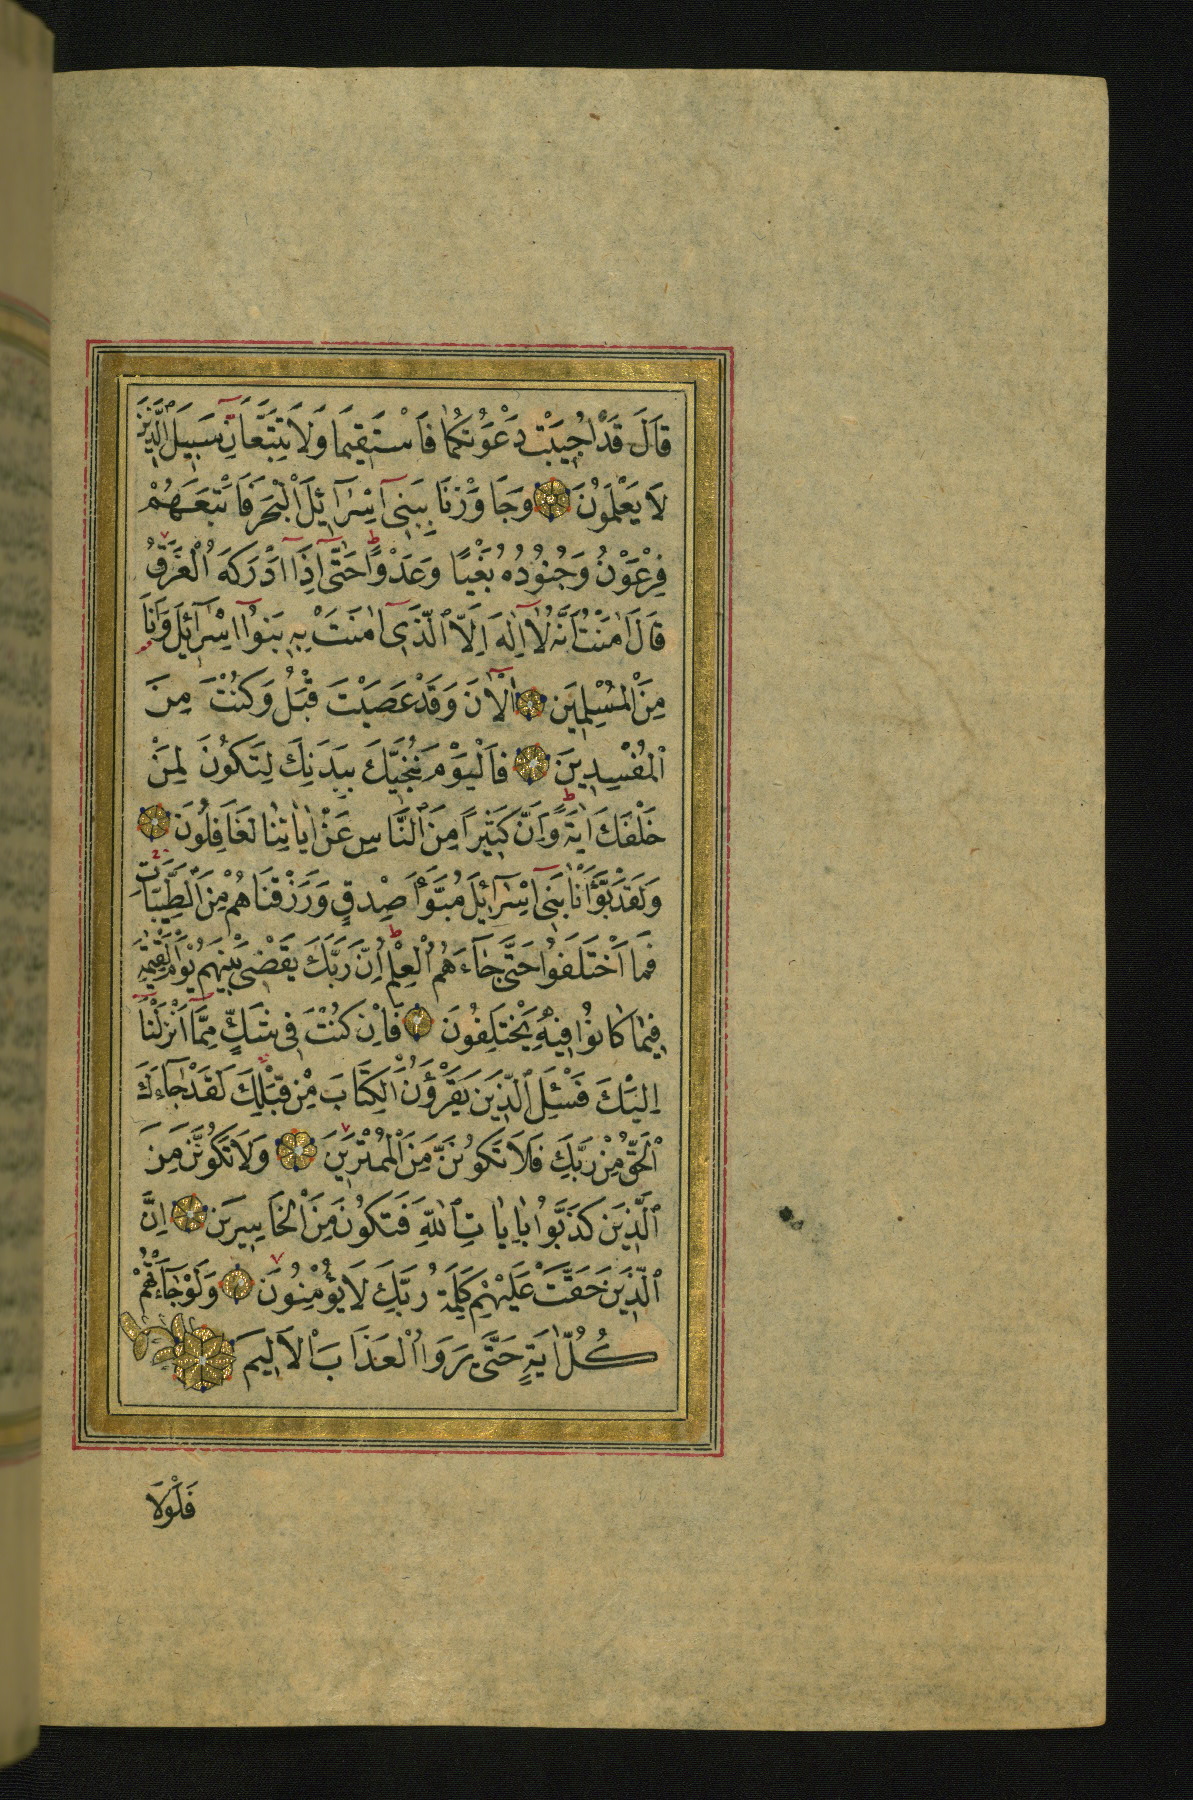 قَالَ قَدْ اُجِيبَتْ دَعْوَتُكُمَا فَاسْتَقِيمَا وَلَا تَتَّبِعَانِّ سَبِيلَ الَّذِينَ
لَا يَعْلَمُونَ وَجَاوَزْنَا بِبَنِى اِسْرَائِلَ الْبَحْرَ فَاَتْبَعَهُمْ
فِرْعَوْنُ وَجُنُودُهُ بَغْيًا وَعَدْوًا حَتَّى اِذَا اَدْرَكَهُ الْغَرَقُ
قَالَ اٰمَنْتُ اَنَّهُ لَا اِلٰهَ اِلَّا الَّذِى اٰمَنَتْ بِهِ بَنُوا اِسْرَائِلَ وَاَنَا
مِنَ الْمُسْلِمِينَ اٰلْاٰنَ وَقَدْ عَصَيْتَ قَبْلُ وَكُنْتَ مِنَ
الْمُفْسِدِينَ فَالْيَوْمَ نُنَجِّيكَ بِبَدَنِكَ لِتَكُونَ لِمَنْ
خَلْفَكَ اٰيَةً وَاِنَّ كَثِيرًا مِنَ النَّاسِ عَنْ اٰيَاتِنَا لَغَافِلُونَ
وَلَقَدْ بَوَّأْنَا بَنِى اِسْرَائِلَ مُبَوَّأَ صِدْقٍ وَرَزَقْنَاهُمْ مِنَ الطَّيِّبَاتِ
فَمَا اخْتَلَفُوا حَتَّى جَاءَهُمُ الْعِلْمُ اِنَّ رَبَّكَ يَقْضِى بَيْنَهُمْ يَوْمَ الْقِيٰمَةِ
فِيمَا كَانُوا فِيهِ يَخْتَلِفُونَ فَاِنْ كُنْتَ فِى شَكٍّ مِمَّا اَنْزَلْنَا
اِلَيْكَ فَسْئَلِ الَّذِينَ يَقْرَؤُنَ الْكِتَابَ مِنْ قَبْلِكَ لَقَدْ جَاءَكَ
الْحَقُّ مِنْ رَبِّكَ فَلَا تَكُونَنَّ مِنَ الْمُمْتَرِينَ وَلَا تَكُونَنَّ مِنَ
الَّذِينَ كَذَّبُوا بِاٰيَاتِ اللّٰهِ فَتَكُونَ مِنَ الْخَاسِرِينَ اِنَّ
الَّذِينَ حَقَّتْ عَلَيْهِمْ كَلِمَةُ رَبِّكَ لَا يُؤْمِنُونَ وَلَوْ جَاءَتْهُمْ
كُلُّ اٰيَةٍ حَتَّى يَرَوُا الْعَذَابَ الْاَلِيمَ
فَلَوْلَا